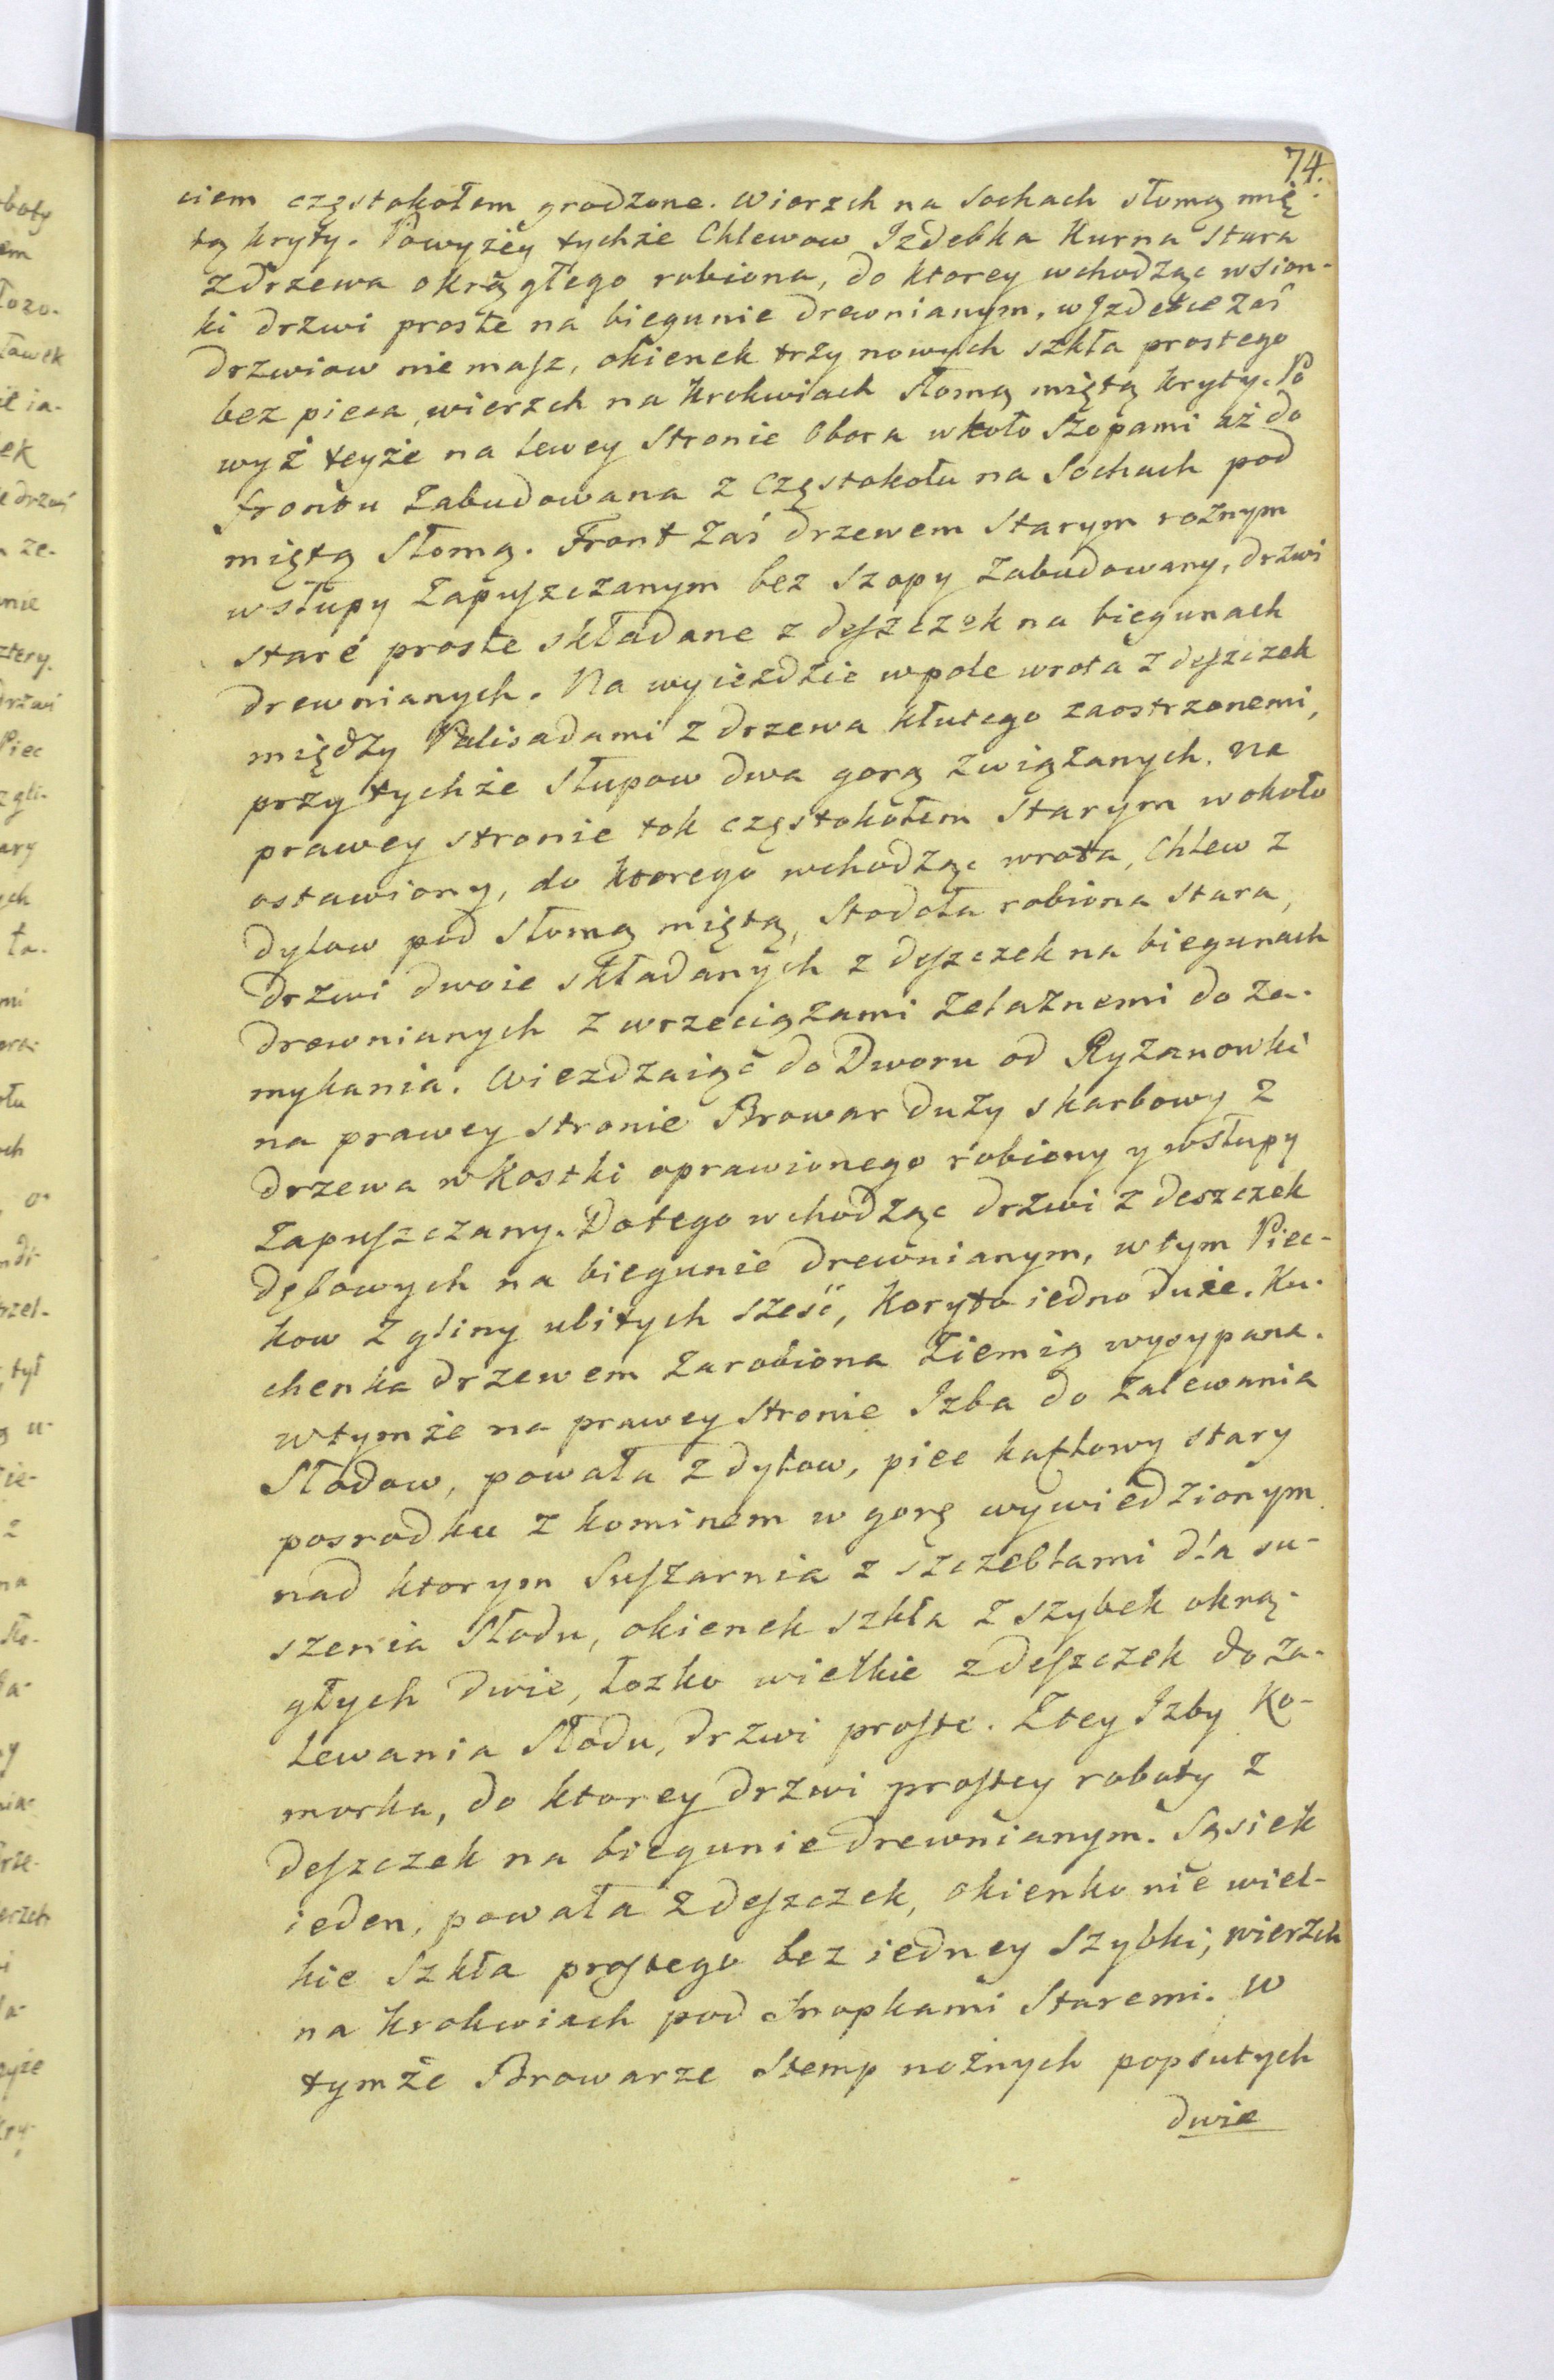 74.
ciem częstokołem grodzone. Wierzch na Sochach słomą mię
tą kryty. Powyżey tychże Chlewow Izdebka Kurna stara
z drzewa okrągłego robiona, do ktorey wchodząc w sion-
ki drzwi proste na biegunie drewnianym, w Izdebce zaś
drzwiow nie masz, okienek trzy nowych szkła prostego
bez pieca, wierzch na Krokwiach słomą miętą kryty. Po
wyż teyże na lewey Stronie Obora wkoło Szopami aż do
frontu zabudowana z Częstokołu na Sochach pod
miętą Słomą. Front zaś drzewem Starym rożnym
w słupy zapuszczanym bez Szopy zabudowany, drzwi
staré proste składane z deszczek na biegunach
drewnianych. Na wyieździe w pole wrota z deszczek
między Palisadami z drzewa kłutego zaostrzonemi,
przy tychże Słupow dwa gorą związanych. Na
prawey stronie tok częstokołem Starym wokoło
ostawiony, do ktorego wchodząc wrota, Chlew z
dylow pod Słomą miętą, Stodoła robiona stara,
Drzwi dwoie składanych z deszczek na biegunach
drewnianych z wrzeciązami żelaznemi do za-
mykania. Wiezdzaiąc do Dworu od Ryzanowki
na prawey stronie Browar duży skarbowy z
drzewa w Kostki oprawionego robiony y w słupy
zapuszczany. Do tego wchodząc drzwi z deszczek
dębowych na biegunie drewnianym, w tym Piec-
kow z gliny ubitych sześć, Koryto iedno duże. Ku-
chenka drzewem zarobiona Ziemią wysypana.
w tymże na prawey stronie Izba do zalewania
Słodow, powała z dylow, piec kaflowy stary
posrodku z kominem w gorę wywiedzionym
nad ktorym Suszarnia z szczeblami dla su-
szenia Słodu, okienek szkła z szybek okrą-
głych dwie, łozko wielkie z deszczek do za-
lewania Słodu, drzwi proste. Z tey Izby Ko-
morka, do ktorey drzwi prostey roboty z
deszczek na biegunie drewnianym. Sąsiek
ieden, powała z deszczek, okienko nie wiel-
kie Szkła prostego bez iedney Szybki, wierzch
na Krokwiach pod Snopkami Staremi. W
tymże Browarze Stemp nożnych popsutych
dwie